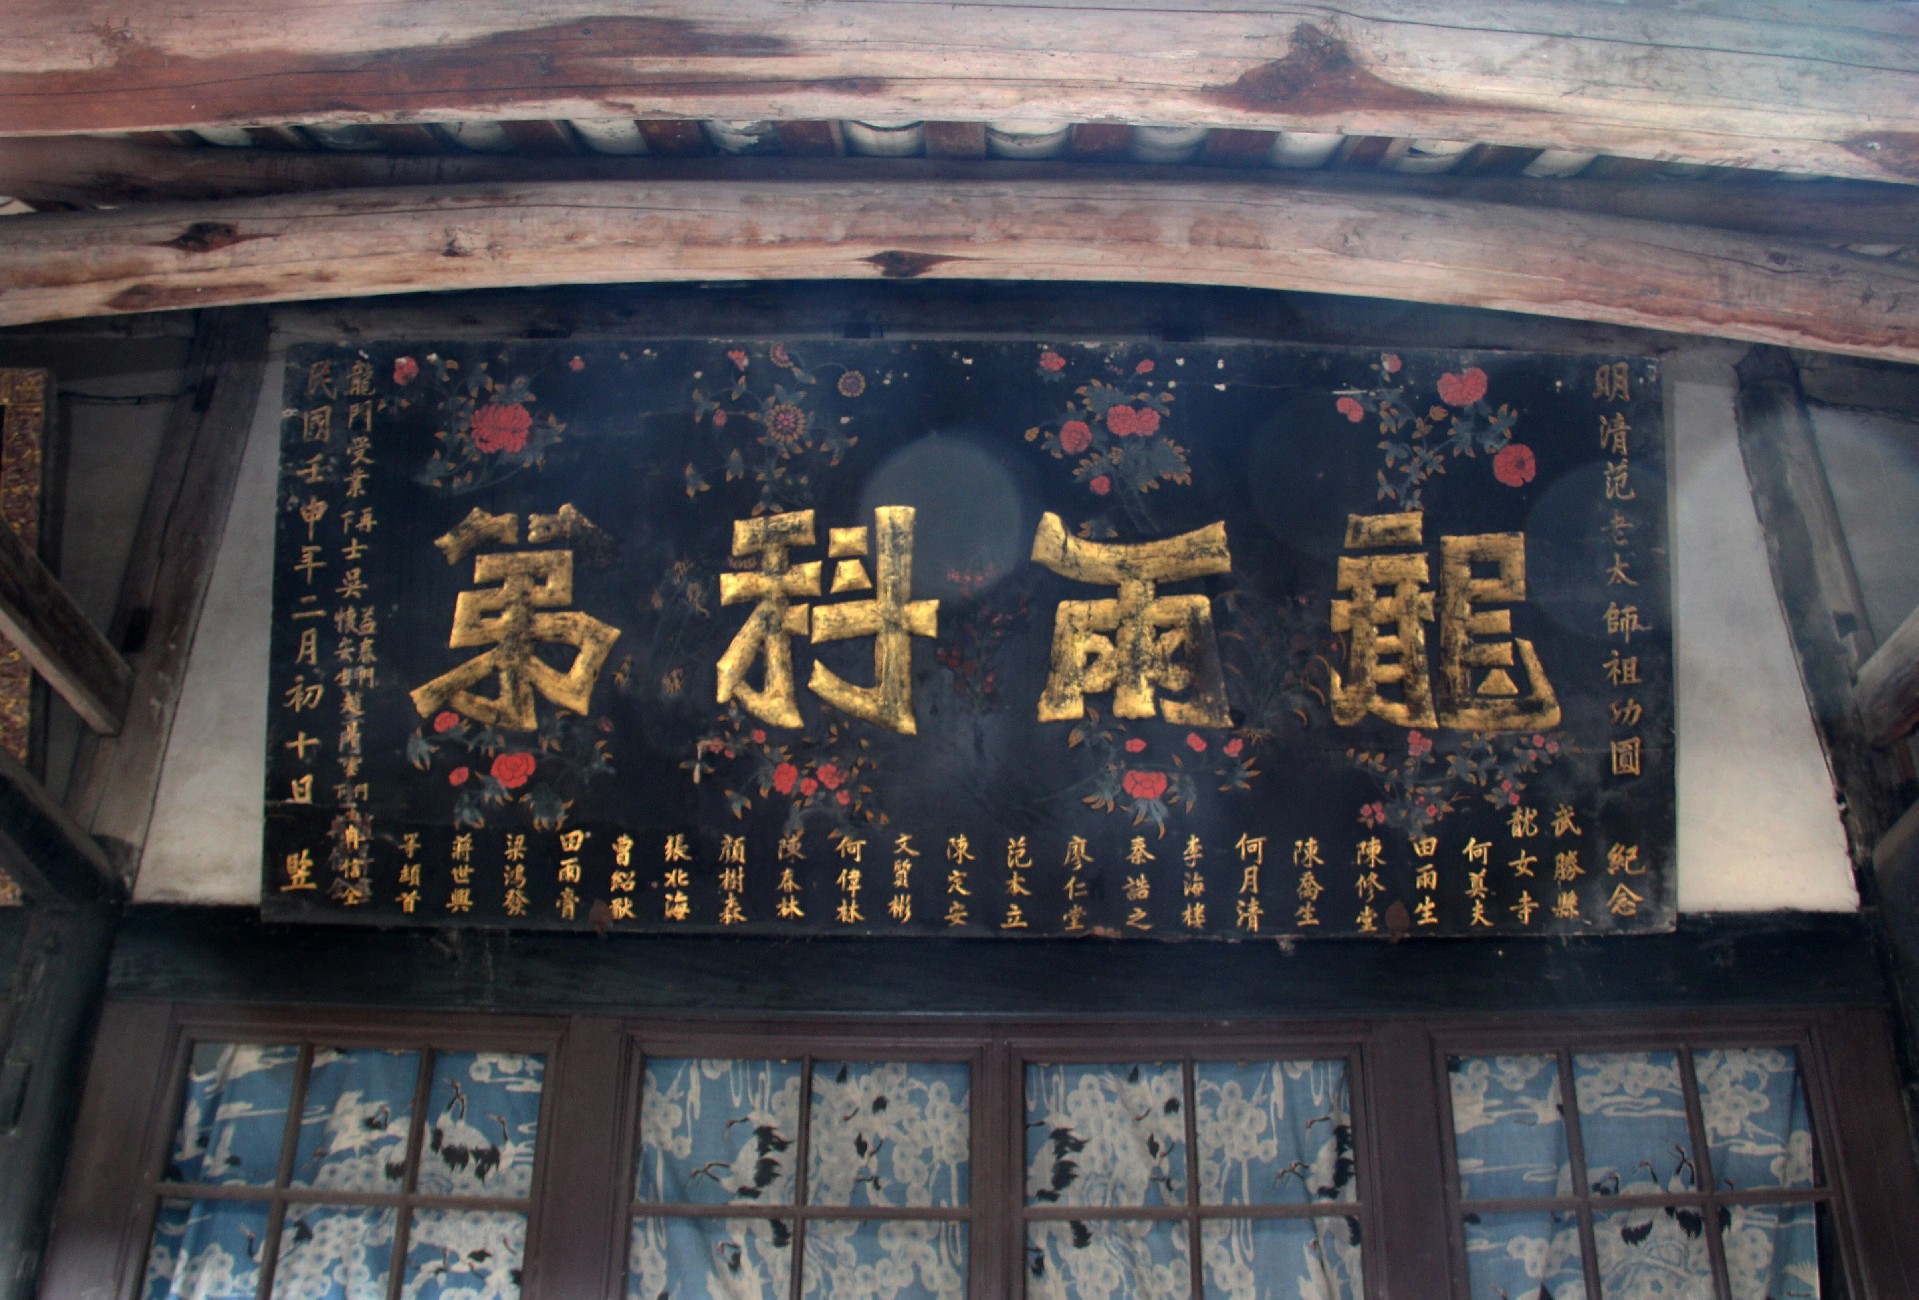 明清范老太師祖功圓 紀念
龍雨科第
武勝縣
龍女寺
何奠夫
田雨生
陳修堂
陳喬生
何月清
李海樓
秦誥之
廖仁堂
范本立
陳定安
文質彬
何偉林
陳春林
顏樹森
張北海
曾紹猷
田雨膏
梁鴻發
蔣世興
等頡首
龍門受業
民國壬申年二月初十日 竪